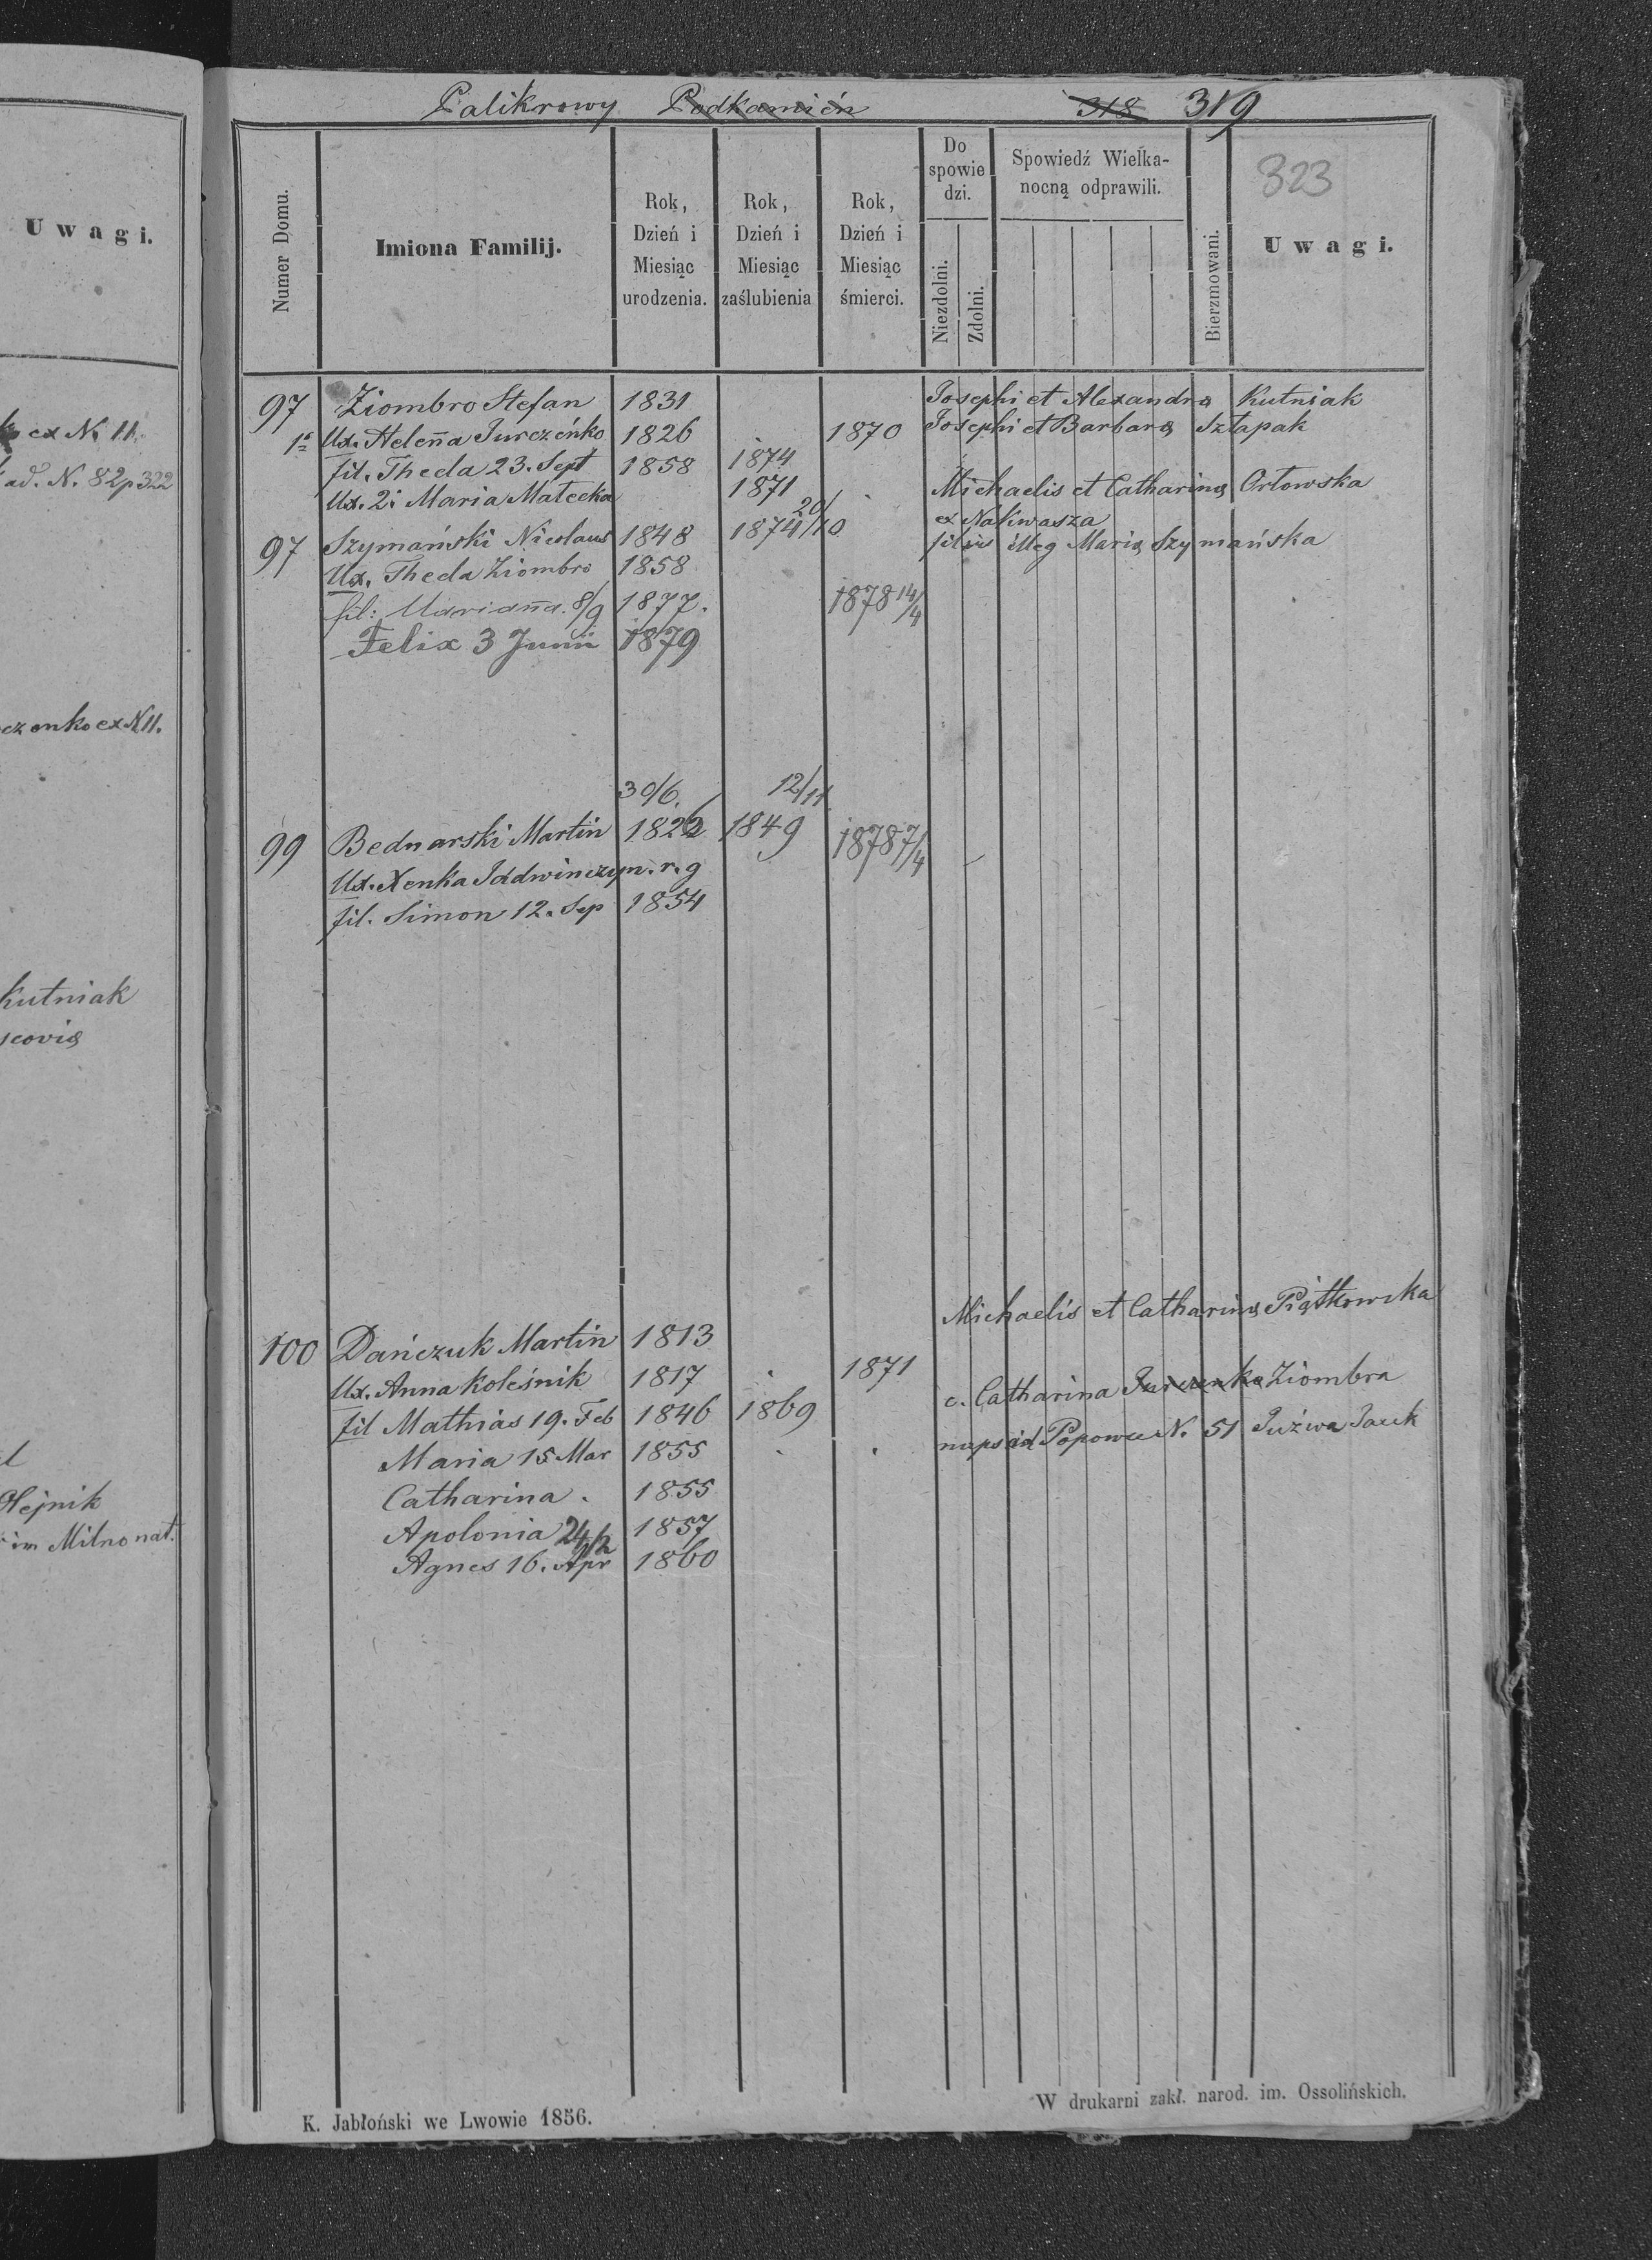 Uwagi.
ex N. 11.
ad. N. 82 p 322
czenko ex N 11.
Kutniak
scoviæ
Olejnik
im Milno nat.
Palikrowy Podkamień 318 319
323
Numer Domu.
Imiona Familij.
Rok, Dzień i Miesiąc urodzenia.
Rok, Dzień i Miesiąc zaślubienia
Rok, Dzień i Miesiąc śmierci.
Do spowiedzi.
Niezdolni.
Zdolni.
Spowiedź Wielkanocną odprawili.
Bierzmowani.
Uwagi.
97 Ziombro Stefan 1831 Josephi et Alexandræ Kutniak
1º Ux. Helena Jurczeńko 1826 1870 Josephi et Barbaræ Sztapak
fil. Theda 23. Sept 1858 1874
Ux. 2i Maria Małecka 1871 Michaelis et Catharinæ Orłowska
ex Nakwasza
97 Szymański Nicolaus 1848 1874 20/10 filius illeg Mariæ Szymańska
Ux. Theda Ziombro 1858
fil: Marianna. 8/9 1877. 1878 14/4
Felix 3 Junii 1879
30/6. 12/11
99 Bednarski Martin 1826 1849 1878 7/4
Ux. Xenka Jadwinczyn. r. g
fil. Simon 12. Sep 1854
Michaelis et Catharinæ Piątkowska
100 Dańczuk Martin 1813
Ux. Anna Koleśnik 1817 1871
fil Mathias 19. Feb 1846 1869 c. Catharina Jurczenko Ziombra
Maria 15 Mar 1855 nups ad Popowce N. 51 Juźwa Jacek
Catharina. 1855
Apolonia 24/2 1857
Agnes 16. Apr 1860
K. Jabłoński we Lwowie 1856.
W drukarni zakł. narod. im. Ossolińskich.